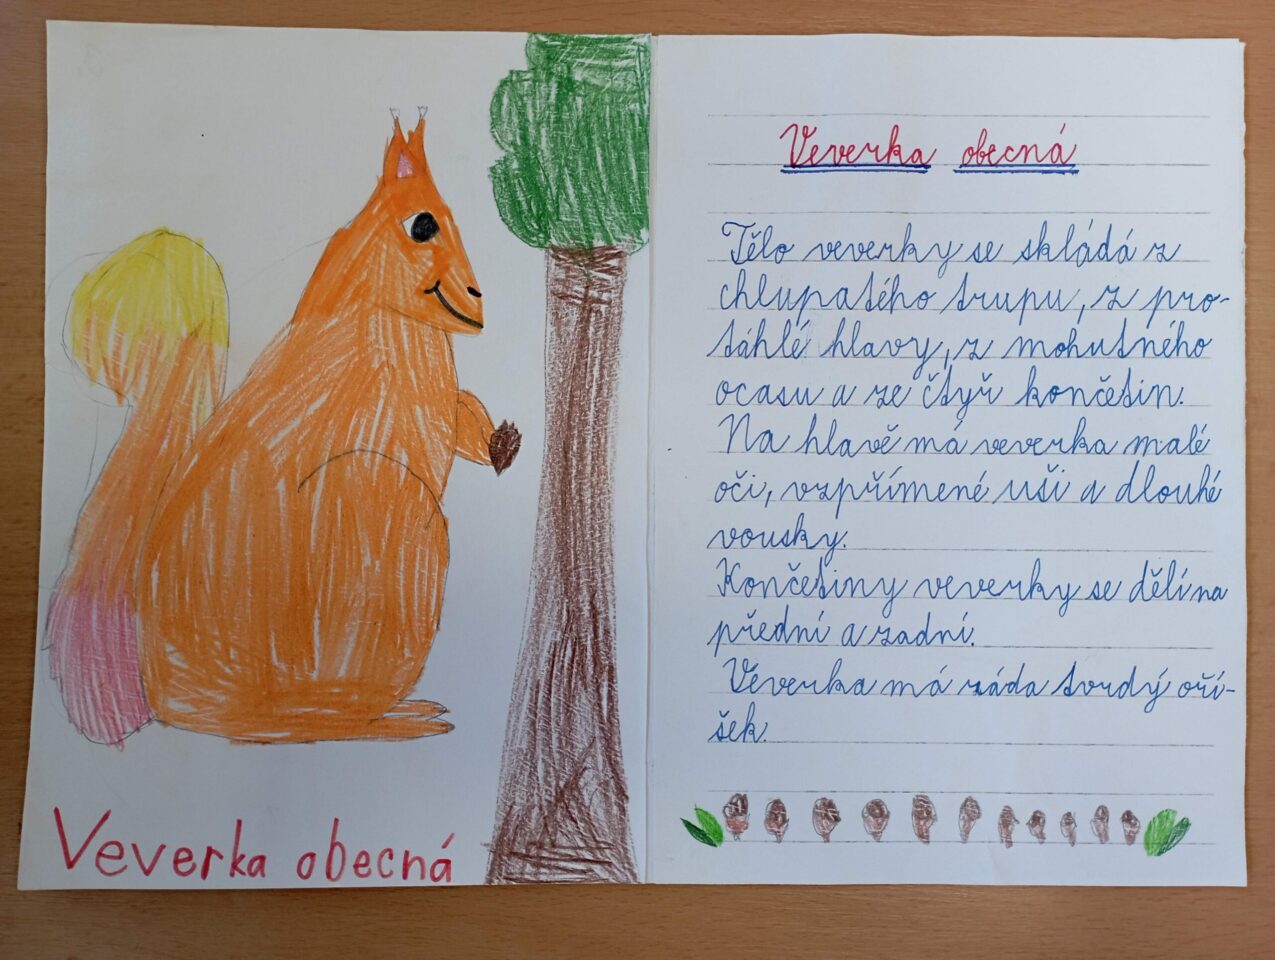 Veverka obecná
Veverka obecná
Tělo veverky se skládá z
chlupatého trupu, z pro-
táhlé hlavy, z mohutného
ocasu a ze čtyř končetin.
Na hlavě má veverka malé
oči, vzpřímené uši a dlouhé
vousky.
Končetiny veverky se dělí na
přední a zadní.
Veverka má ráda tvrdý oří-
šek.